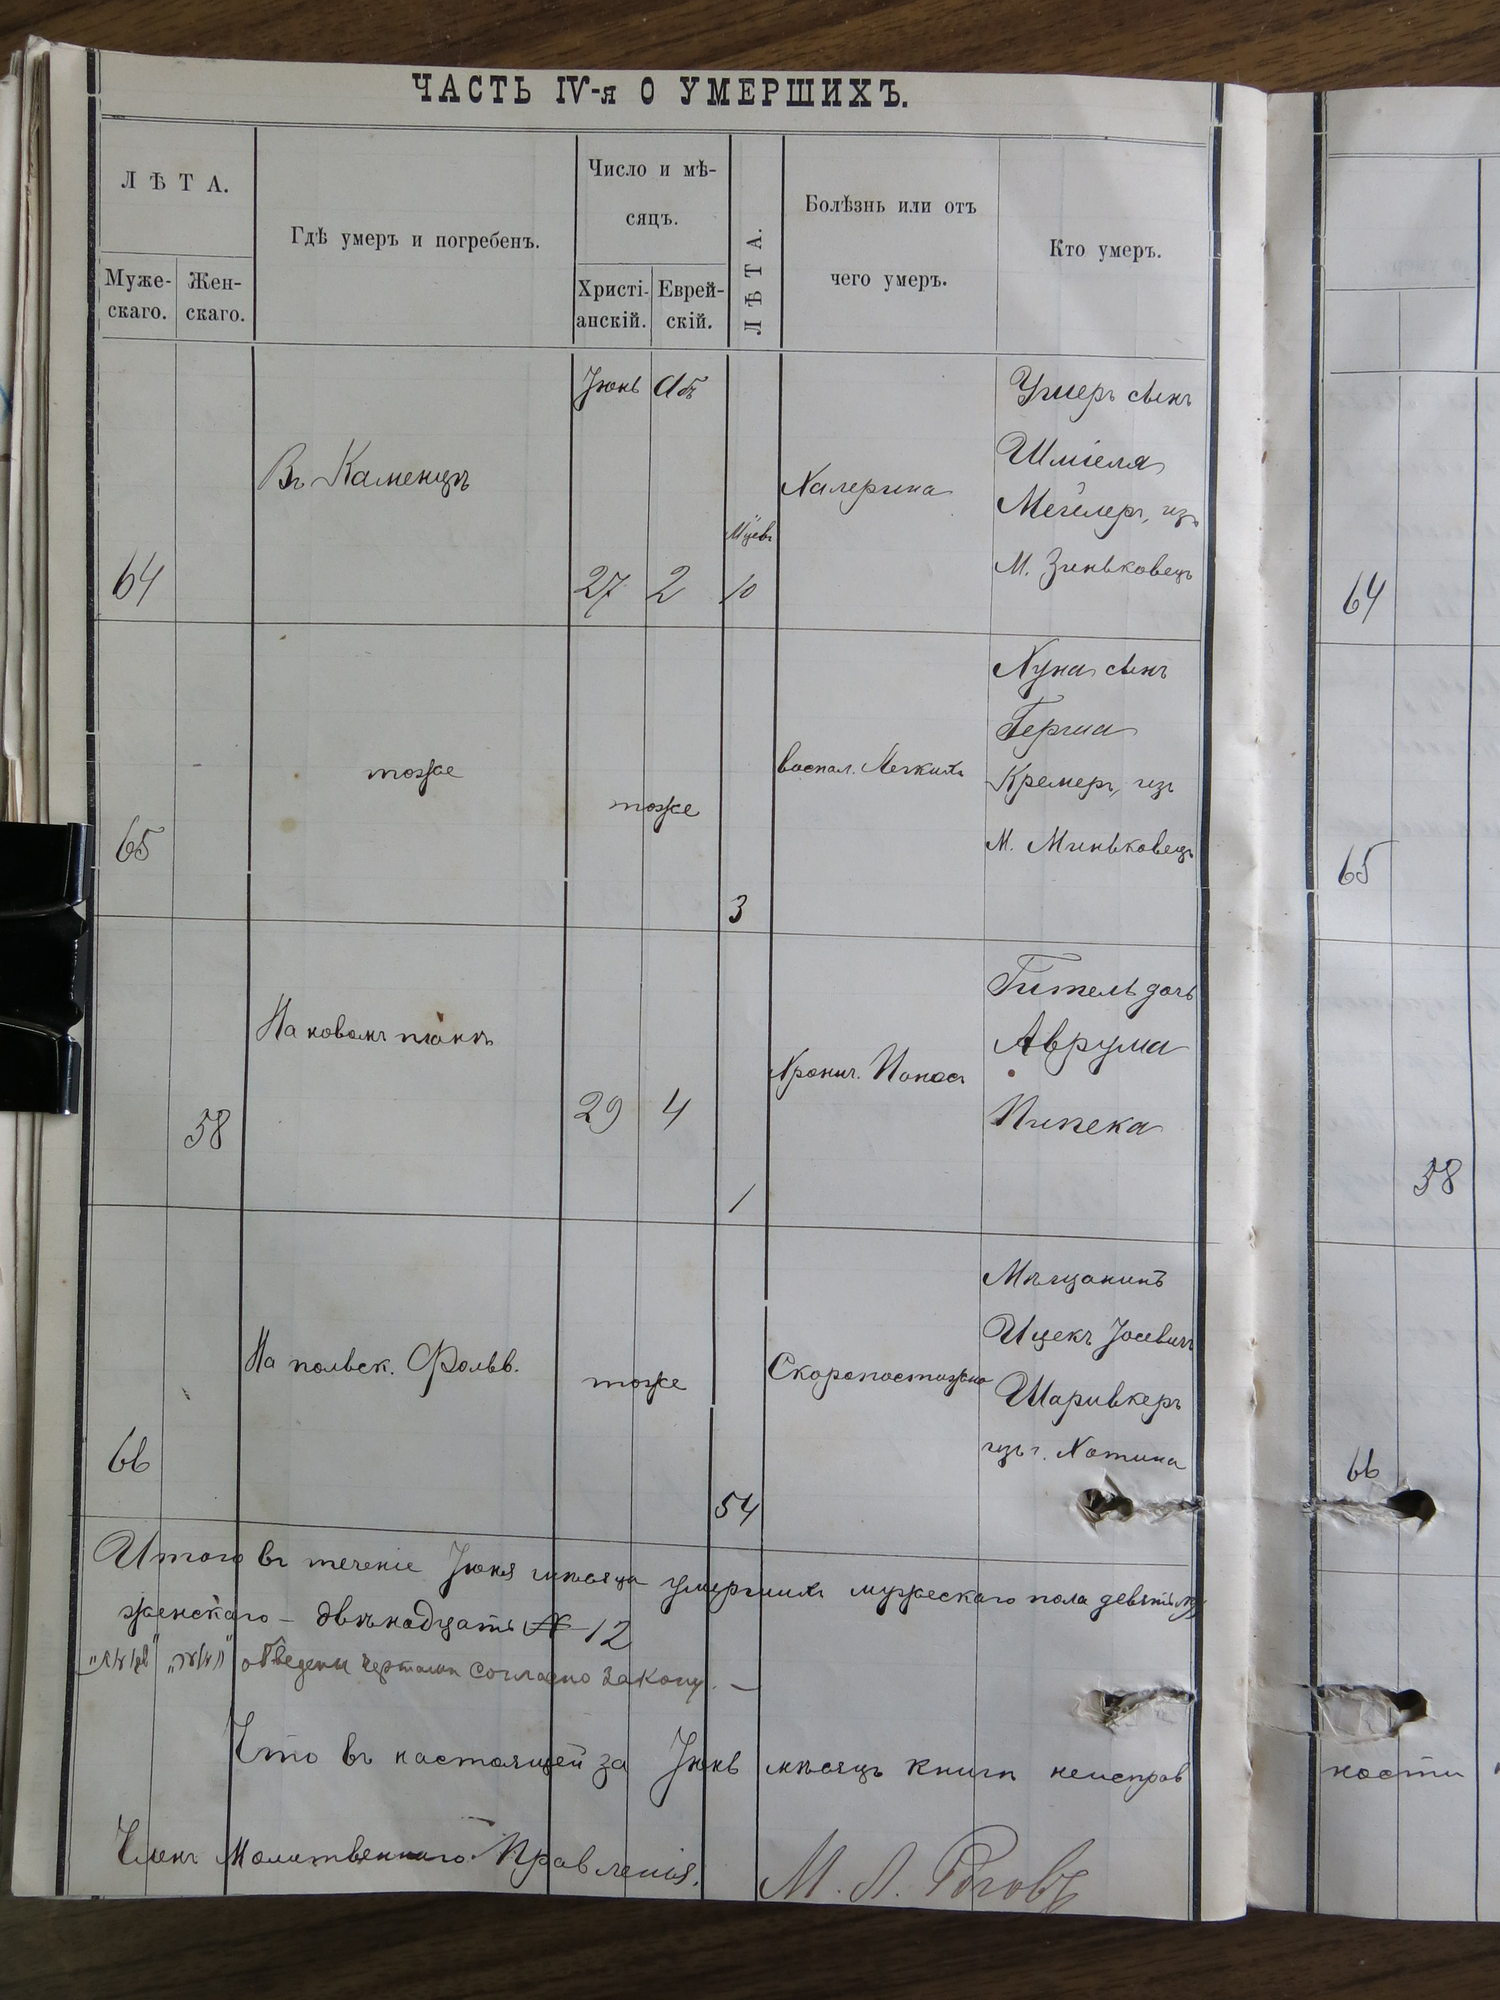 ЧАСТЬ IV-я О УМЕРШИХЪ.
ЛѢТА.
Муже-
скаго.
Жен-
скаго.
Гдѣ умеръ и погребенъ.
Число и мѣ-
сяцъ.
Христі-
анскій.
Еврей-
скій.
ЛѢТА.
Болѣзнь или отъ
чего умеръ.
Кто умеръ.
64
Въ Каменцѣ
Іюнь
27
Абъ
2
10
Холерина
Умеръ сынъ
Шміеля
изъ
М. Зиньковецъ
64
65
тоже
тоже
3
воспал. Легкихъ
Хуна сынъ
Герша
Кремеръ, изъ
М. Миньковецъ
65
58
На новомъ планѣ
29
4
1
Хронич. Поносъ
Гитель дочь
Аврума
Пипека
58
66
На польск. Фольв.
тоже
54
Скоропостижно
Мѣщанинъ
Ицекъ Іосевичъ
Шаривкеръ
изъ г. Хотина
66
Итого въ теченіе Іюня мѣсяца умершихъ мужескаго пола девять
женскаго – двѣнадцать 12
обведены чертами согласно закону. –
Что въ настоящей за Іюнь мѣсяцъ книги неисправ
ности
Членъ Молитвеннаго Правленія.
М. Л. Роговъ